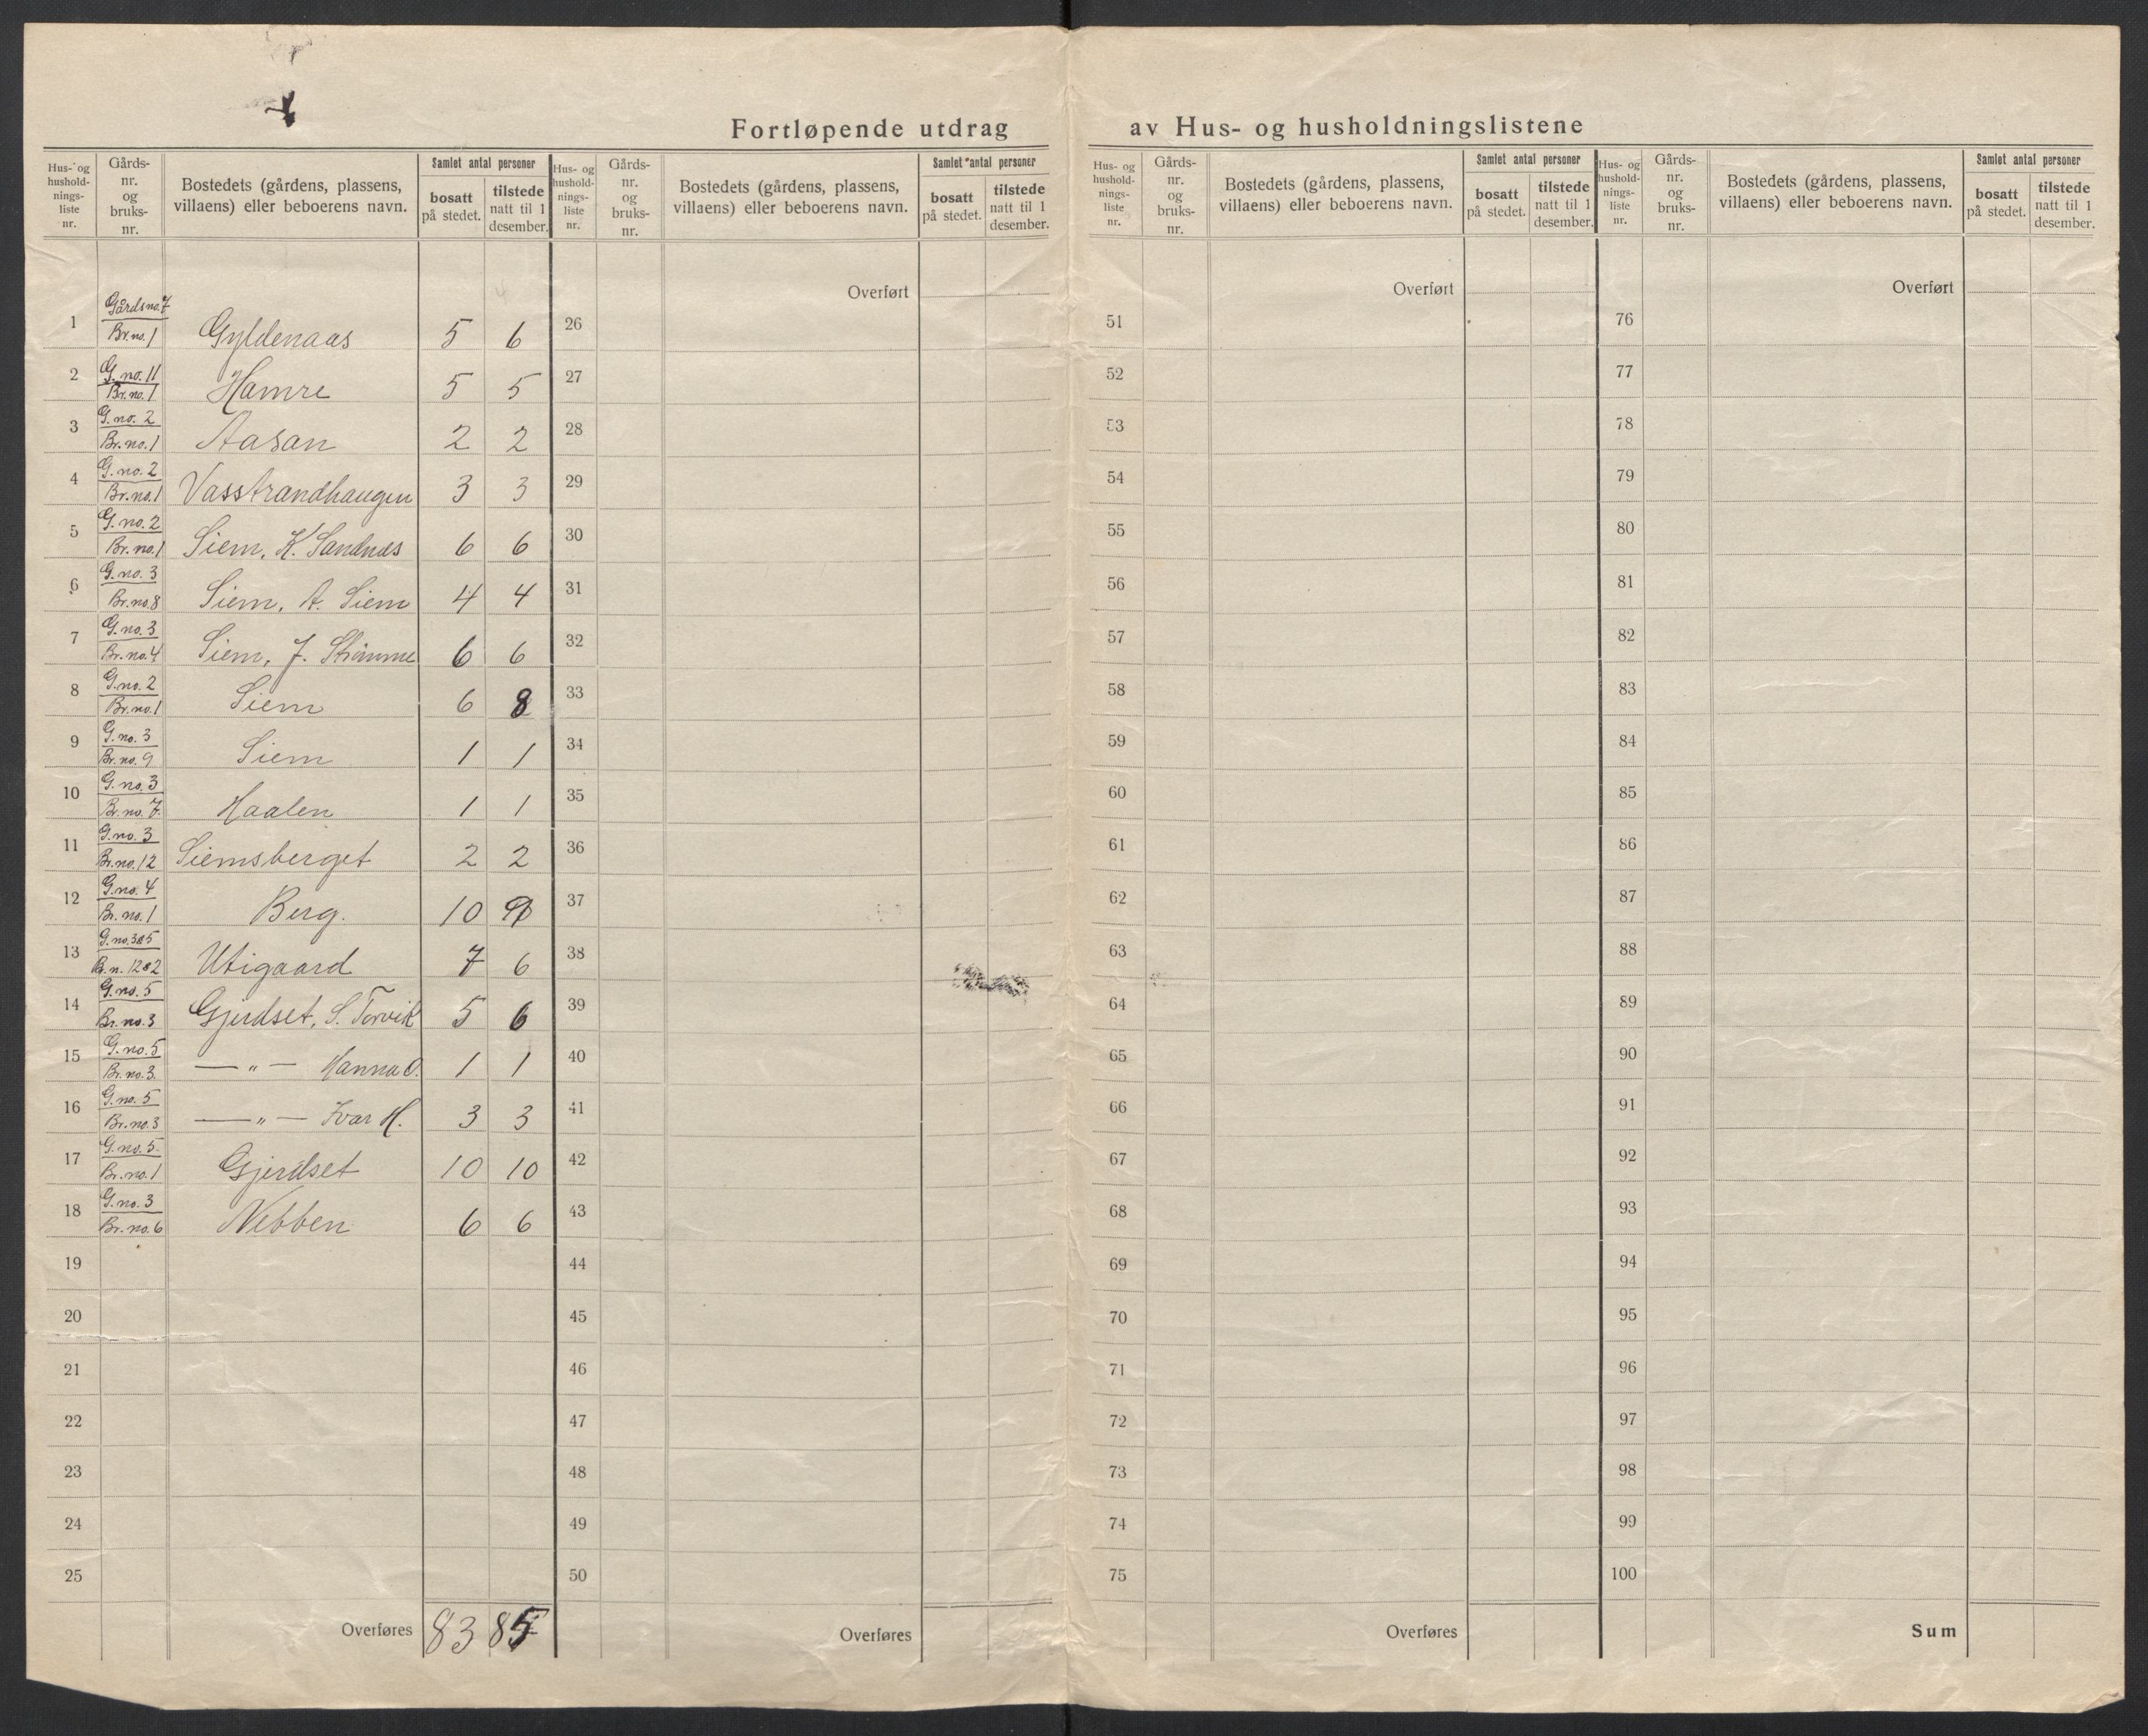 Fortløpende utdrag av Hus- og husholdningslistene
Hus- og husholdnings- liste nr. | Gårds- nr. og bruks- nr. | Bostedets (gårdens, plassens, villaens) eller beboerens navn. | Samlet antal personer bosatt på stedet. | tilstede natt til 1 desember.
1 | Gårdsno. 7 Br. no. 1 | Gyldenaas | 5 | 6
2 | G. no. 11 Br. no. 1 | Hamre | 5 | 5
3 | G. no. 2 Br. no. 1 | Aasan | 2 | 2
4 | G. no. 2 Br. no. 1 | Vasstrandhaugen | 3 | 3
5 | G. no. 2 Br. no. 1 | Siem, K. Sandnes | 6 | 6
6 | G. no. 3 Br. no. 8 | Siem, A. Siem | 4 | 4
7 | G. no. 3 Br. no. 4 | Siem, J. | 6 | 6
8 | G. no. 2 Br. no. 1 | Siem | 6 | 8
9 | G. no. 3 Br. no. 9 | Siem | 1 | 1
10 | G. no. 3 Br. no. 7 | Haalen | 1 | 1
11 | G. no. 3 Br. no. 12 | Siemsberget | 2 | 2
12 | G. no. 4 Br. no. 1 | Berg. | 10 | 9
13 | G. no. 3&5 B. n. 12&2 | Utigaard | 7 | 6
14 | G. no. 5 Br. no. 3 | Gjerdset, S. Torvik | 5 | 6
15 | G. no. 5 Br. no. 3. | — „ — Hanna O. | 1 | 1
16 | G. no. 5 Br. no. 3 | — „ — Ivar H. | 3 | 3
17 | G. no. 5. Br. no. 1 | Gjerdset | 10 | 10
18 | G. no. 3 Br. no. 6 | Nebben | 6 | 6
19
20
21
22
23
24
25
Overføres 83 85
Hus- og husholdnings- liste nr. | Gårds- nr. og bruks- nr. | Bostedets (gårdens, plassens, villaens) eller beboerens navn. | Samlet antal personer bosatt på stedet. | tilstede natt til 1 desember.
Overført
26
27
28
29
30
31
32
33
34
35
36
37
38
39
40
41
42
43
44
45
46
47
48
49
50
Overføres
Hus- og husholdnings- liste nr. | Gårds- nr. og bruks- nr. | Bostedets (gårdens, plassens, villaens) eller beboerens navn. | Samlet antal personer bosatt på stedet. | tilstede natt til 1 desember.
Overført
51
52
53
54
55
56
57
58
59
60
61
62
63
64
65
66
67
68
69
70
71
72
73
74
75
Overføres
Hus- og husholdnings- liste nr. | Gårds- nr. og bruks- nr. | Bostedets (gårdens, plassens, villaens) eller beboerens navn. | Samlet antal personer bosatt på stedet. | tilstede natt til 1 desember.
Overført
76
77
78
79
80
81
82
83
84
85
86
87
88
89
90
91
92
93
94
95
96
97
98
99
100
Sum